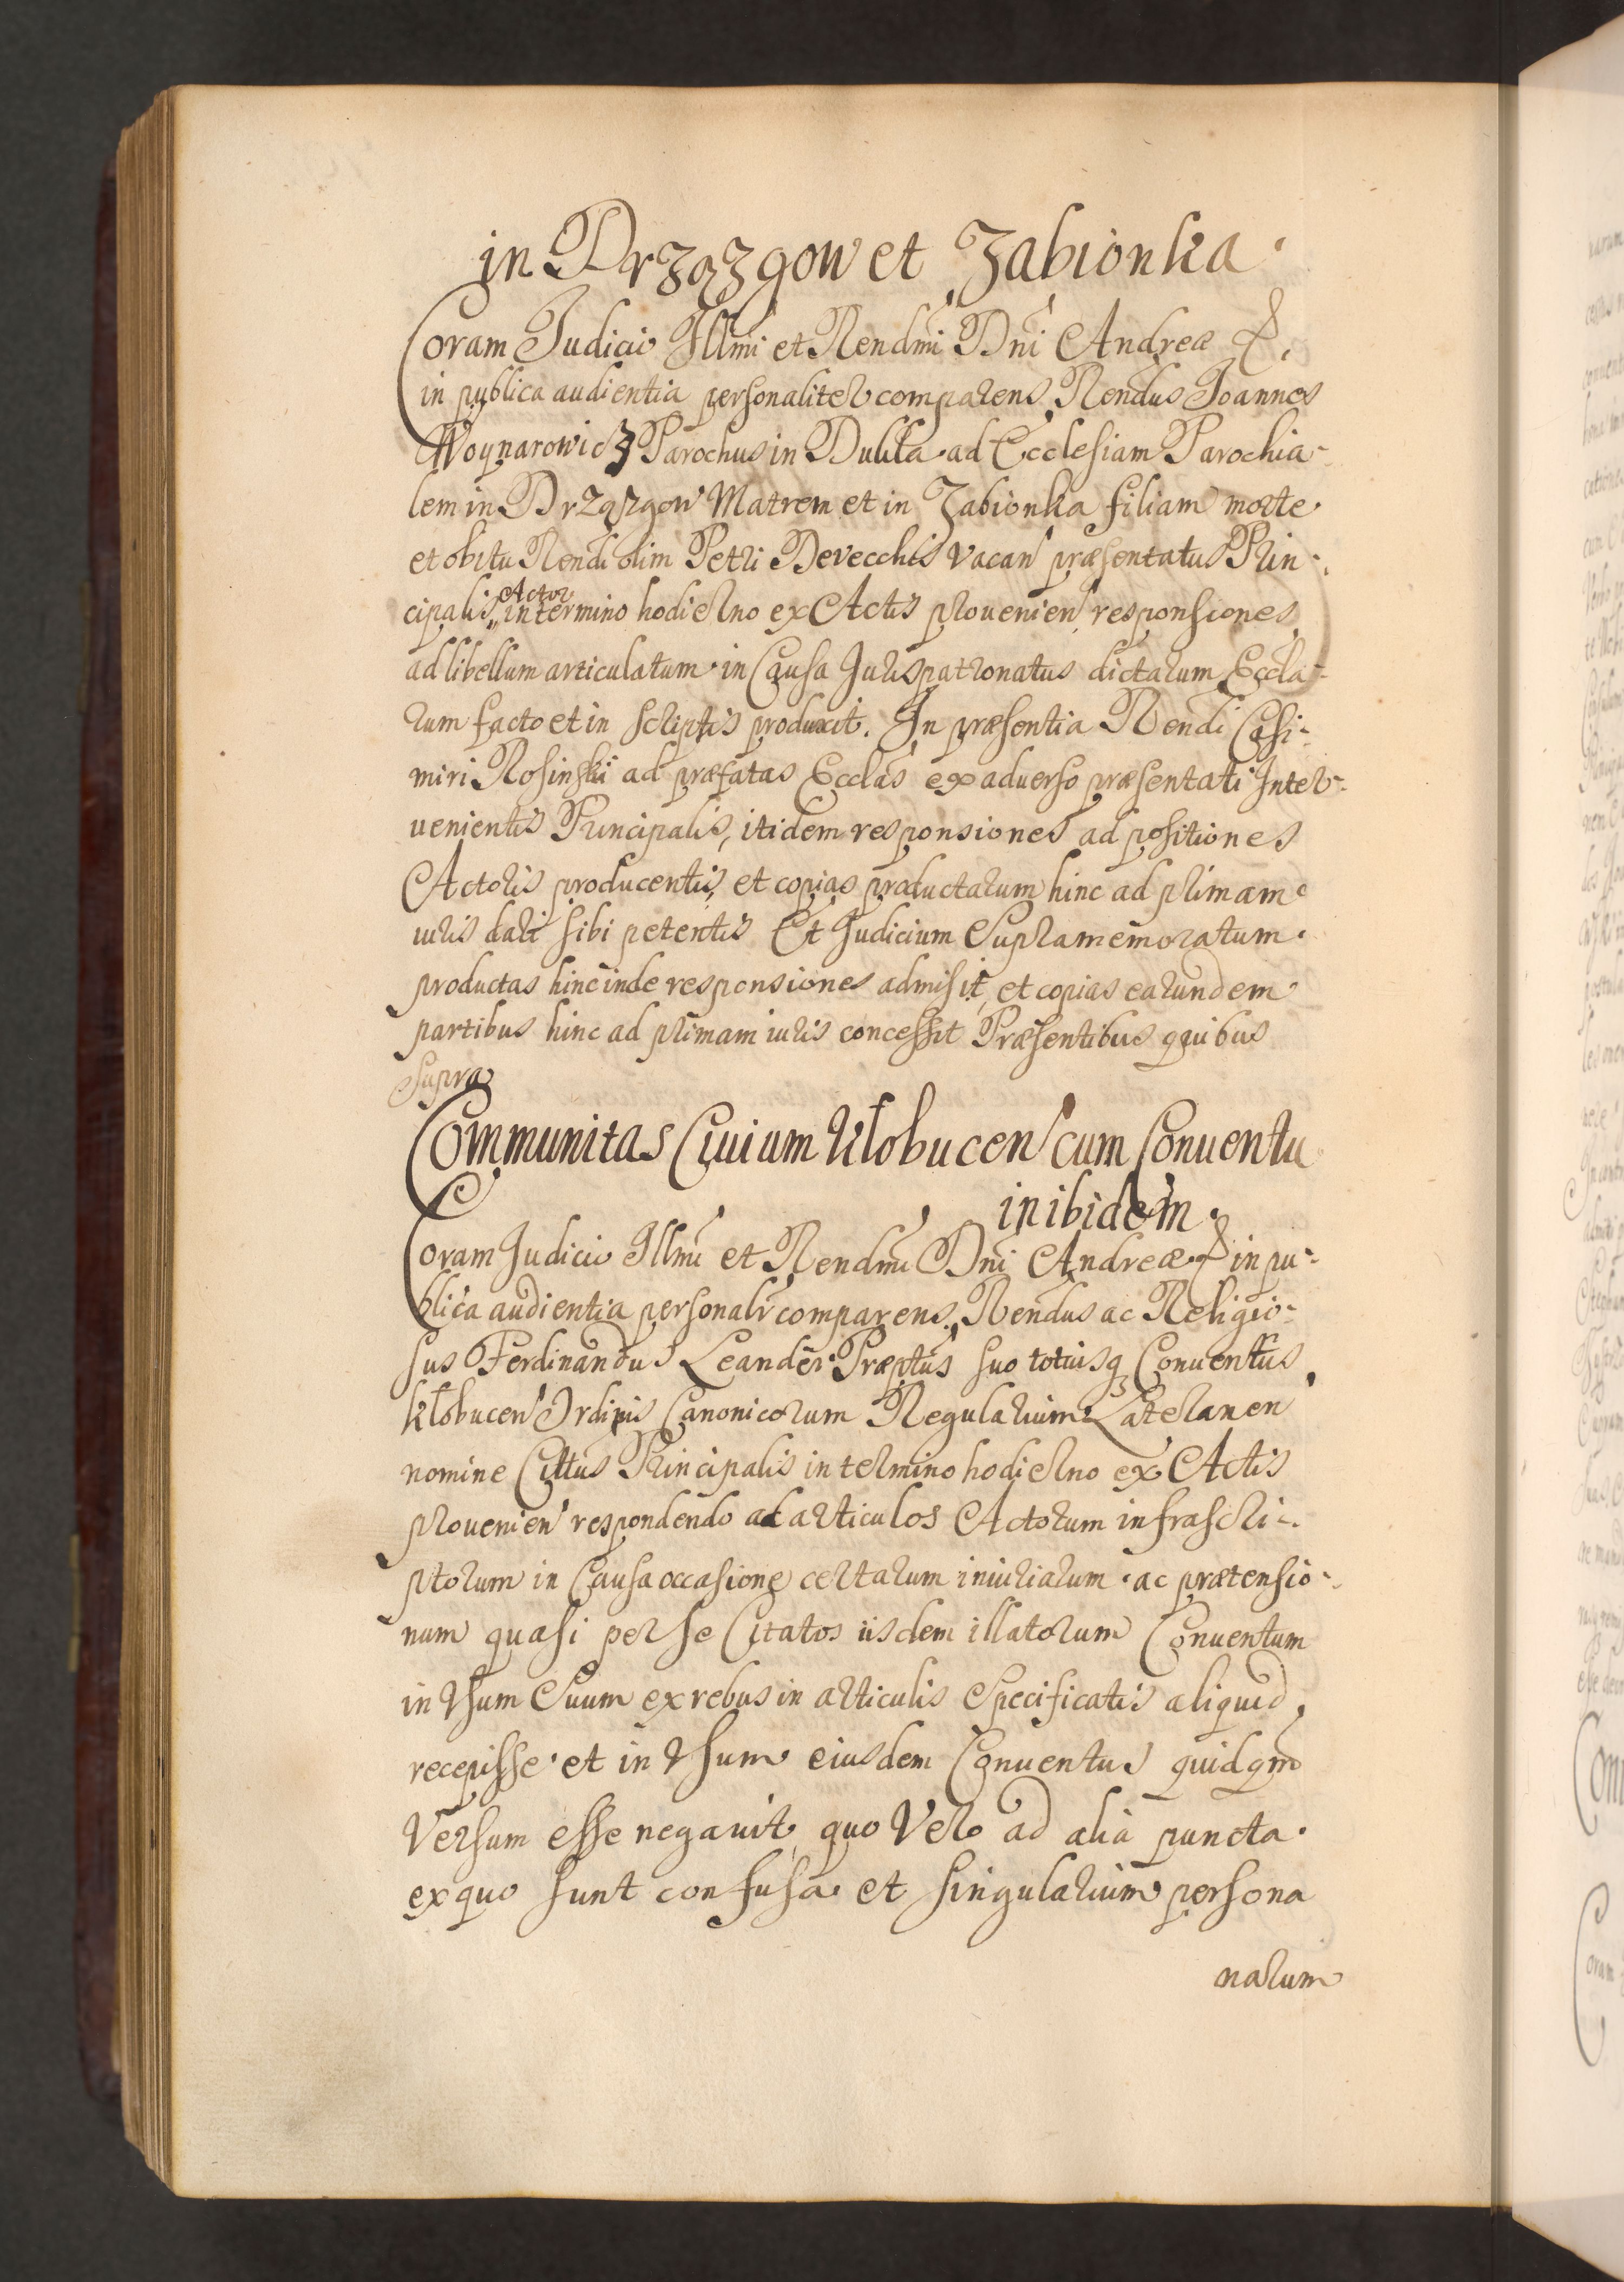 in Drzązgow et Zabionka
Coram Judicio Illmi et Rendmi Dni Andreæ &,
in publica audientia personaliter comparens Rendus Joannes
Woynarowicz Parochus in Dukla ad Ecclesiam Parochia-
lem in Drzązgow Matrem et in Zabionka filiam morte
et obitu Rendi olim Petri Devecchis vacan præsentatus Prin-
cipalis Actor in termino hodierno ex Actis prouenien responsiones
ad libellum articulatum in Causa Jurispatronatus dictarum Eccla-
rum facto et in scriptis produxit. In præsentia Rendi Casi-
miri Rosinski ad præfatas Ecclas ex aduerso præsentati Inter-
uenientis Principalis, itidem responsiones ad positiones
Actoris producentis, et copias productarum hinc ad primam
iuris dari sibi petentis Et Judicium Supramemoratum
productas hincinde responsiones admisit, et copias earundem
partibus hinc ad primam iuris concessit Præsentibus quibus
supra
Communitas Ciuium Klobucen cum Conuentu
inibidem.
Coram Judicio Illmi et Rendmi Dni Andreæ & in pu-
blica audientia personalr comparens Rendus ac Religio-
sus Ferdinandus Leander Præptus suo totiusq Conuentus
Klobucen Ordinis Canonicorum Regularium Lateranen
nomine Cittus Principalis in termino hodierno ex Actis
prouenien respondendo ad articulos Actorum infrascri-
ptorum in Causa occasione certarum iniuriarum ac prætensio-
num quasi per se Citatos iisdem illatorum Conuentum
in Vsum Suum ex rebus in articulis Specificatis aliquid
recepisse et in Vsum eiusdem Conuentus quidqm
Versum esse negauit, quo Vero ad alia puncta
ex quo sunt confusa et singularium persona
narum